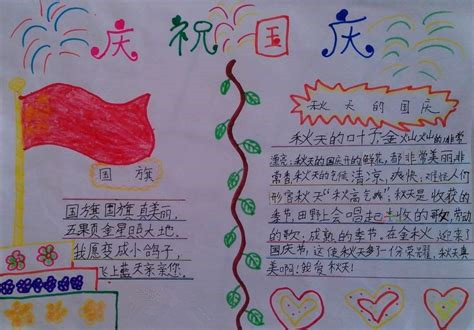 庆祝国庆
国旗
国旗国旗真美丽,
五颗金星照大地,
我愿变成小鸽子,
飞上蓝天亲亲您。
秋天的国庆
秋天的叶子金灿灿的非常
漂亮,秋天的国庆开的鲜花,都非常美丽非
常香,秋天的气候清凉,爽快,难怪人们
形容秋天“秋高气爽”,秋天是收获的
季节,田野会唱起丰收的歌,劳动
的歌,成熟的季节。在金秋迎来了
国庆节,这使秋天多了一份荣耀,秋天真
美啊!我爱秋天!